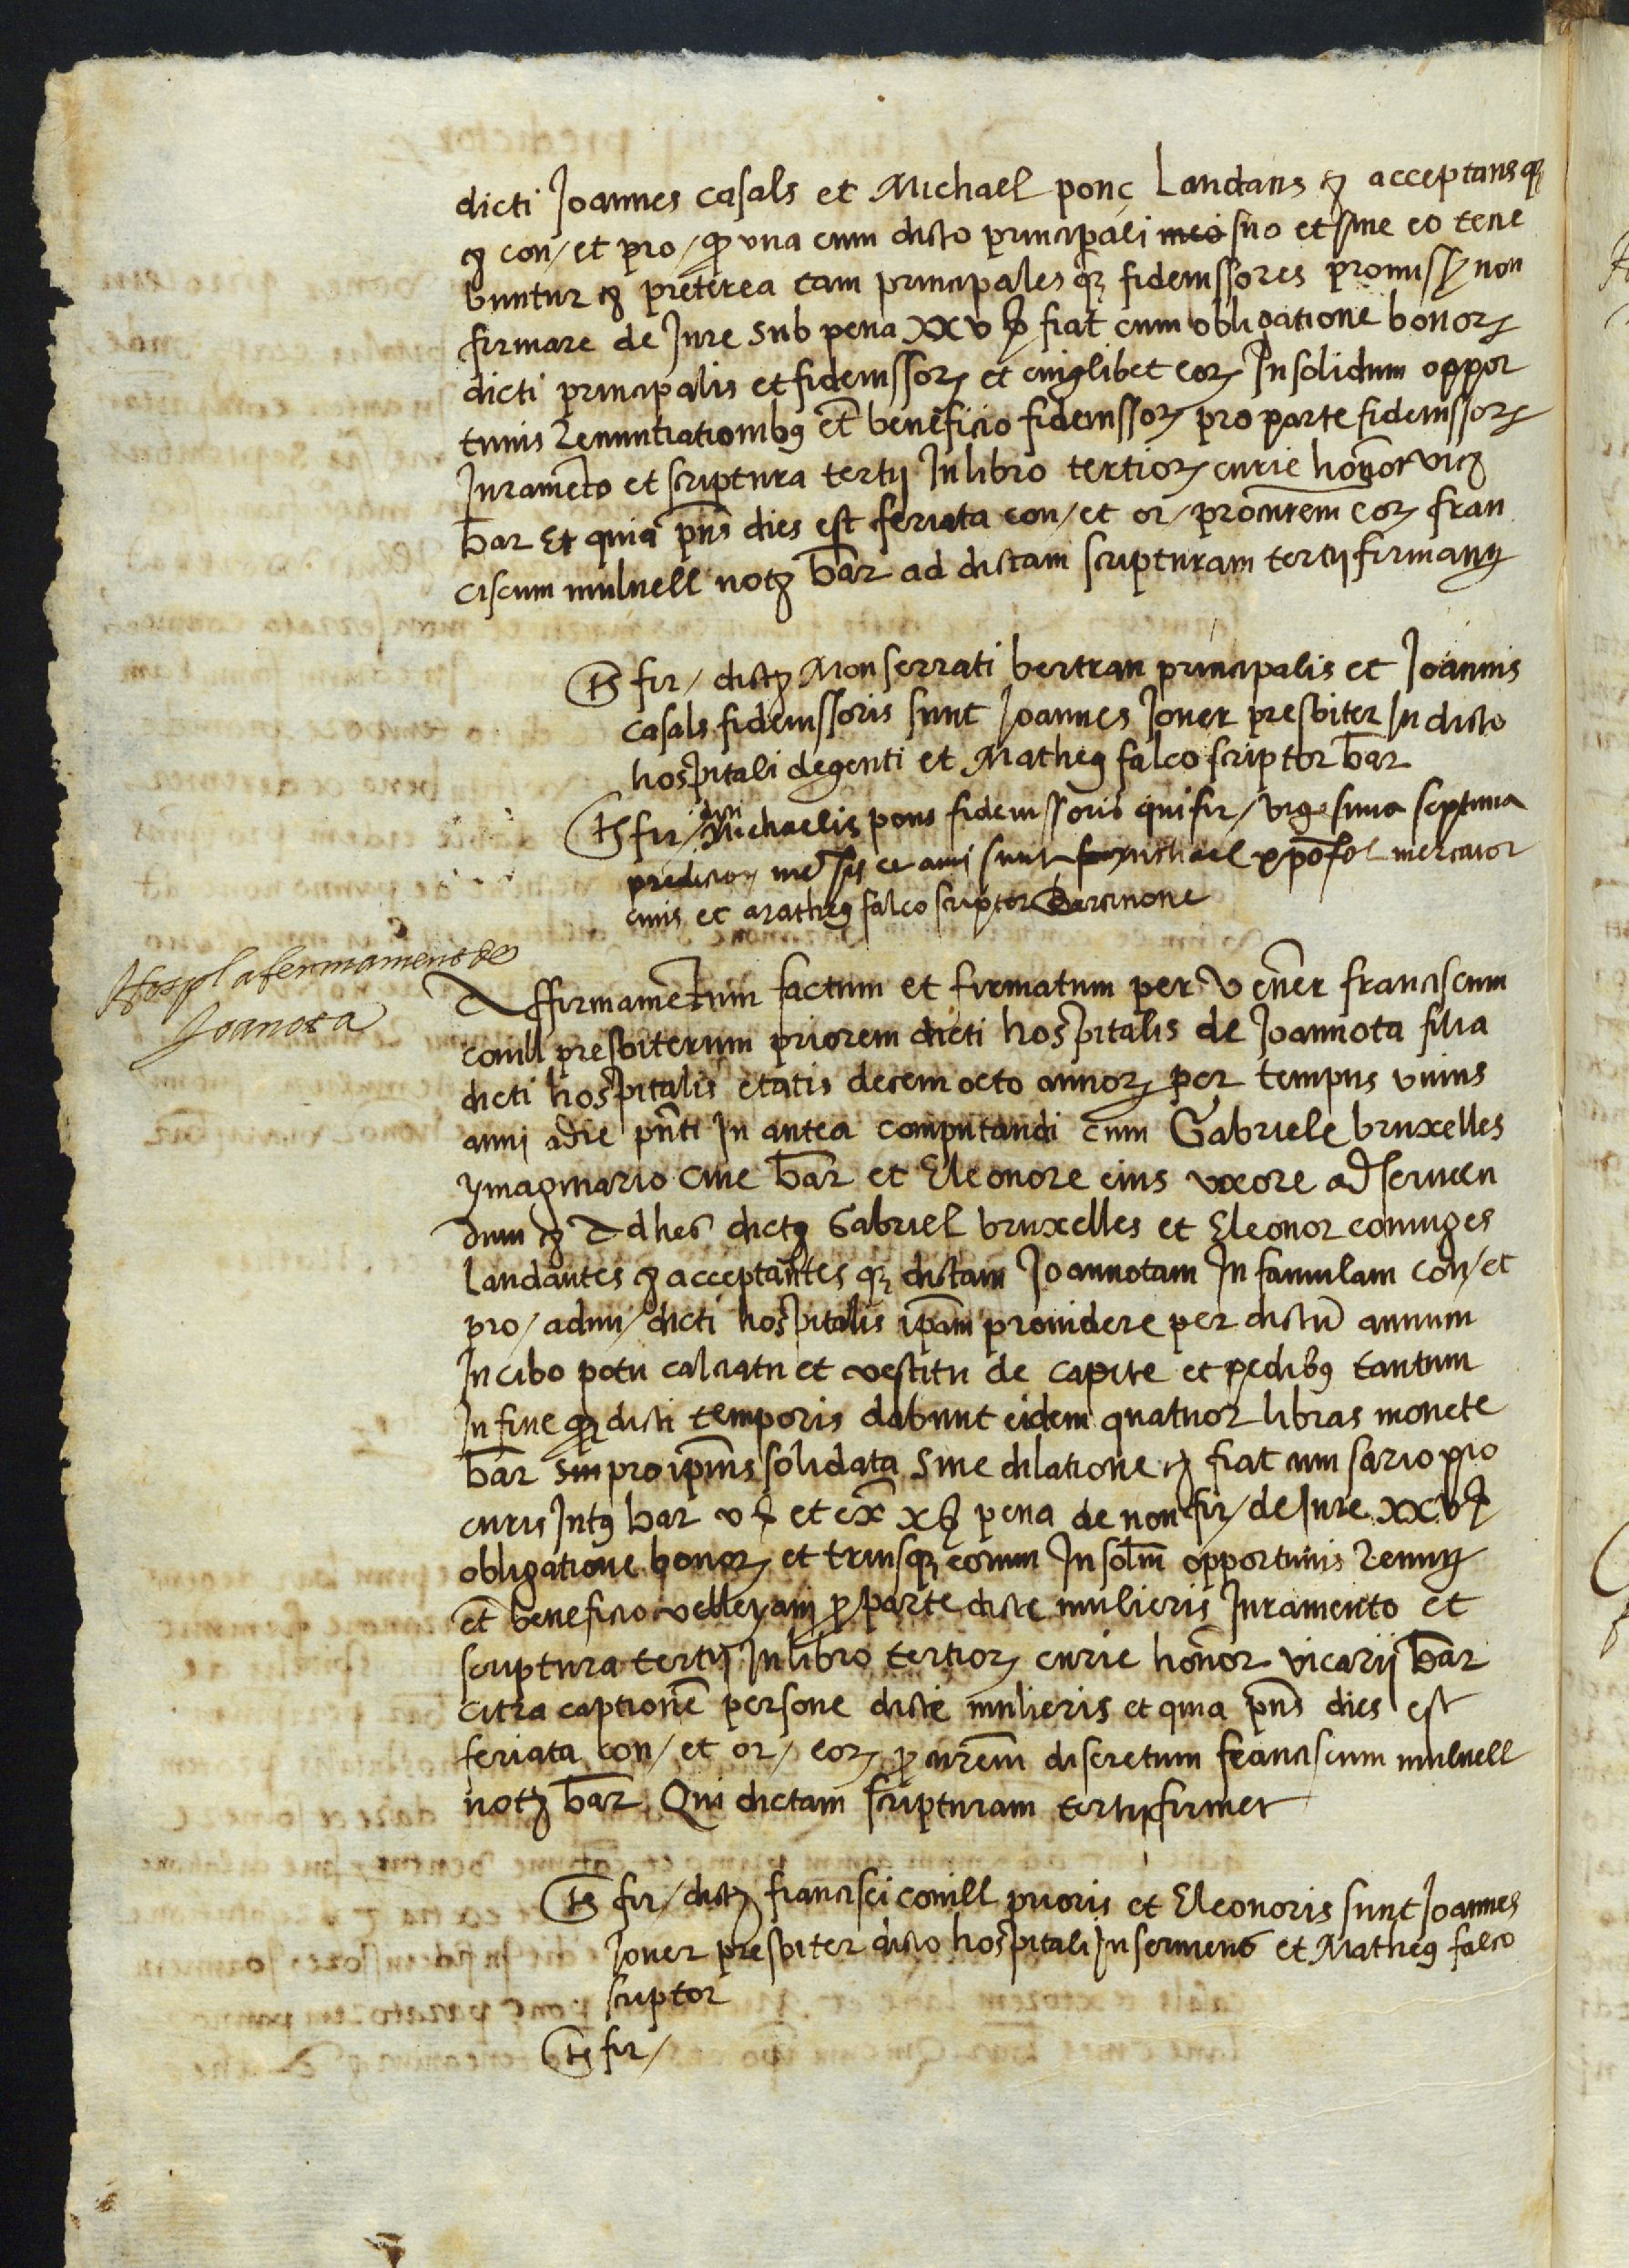 dicti Joannes casals et Michael ponç Laudans &c acceptans q3
&c con/ et pro/ q una cum dicto principali meo suo et sine eo tene
buntur &c preterea tam principales q3 fideiussores promiss non
firmare de Jure sub pena xxv fiat cum obligatione bonor
dicti principalis et fideiussor et cuiuslibet eor Insolidum oppor
tunis Renuntiationibus et beneficio fideiussor pro parte fideiussor
Juramento et scriptura tertij In libro tertior curie honor vicarij
bar Et quia pns dies est feriata con/ et or/ procurem eor fran
ciscum mulnell not bar ad dictam scripturam tertij firmand
ts fir/ dict Monserrati bertran principalis et Joannis
casals fideiussoris sunt Joannes Jover presbiter In dicto
hospitali degenti et Matheus falco scriptor bar
ts fir/ dicti Michaelis pons fideiussoris qui fir/ vigesima septima
predictor mensis et anni sunt michael xpofol mercator
civis et Matheus falco scriptor Barcinone
Hospl afermament de
Joanota
Affirmamentum factum et firmatum per vener franciscum
conill presbiterum priorem dicti hospitalis de Joannota filia
dicti hospitalis etatis decem octo annor per tempus unius
anni a die pnti In antea computandi cum Gabriele bruxelles
ymaginario cive bar et Eleonore eius uxore ad servien
dum &c Ad hec dictus Gabriel bruxelles et Eleonor coniuges
laudantes &c acceptantes q3 dictam Joannotam In famulam con/ et
pro/ admi/ dicti hospitalis ipam providere per dictu annum
In cibo potu calciatu et vestitu de capite et pedibus tantum
In fine q dicti temporis dabunt eidem quatuor libras monete
bar pro ipius solidata sine dilatione &c fiat cum sario pro
curis Intus bar v et ex x pena de non fir/ de Jure xxv
obligatione bonor et triusq3 eorum In solm opportunis Renun
et beneficio velleyani p parte dicte mulieris Juramento et
scriptura tertij In libro tertior curie honor vicarij bar
citra captione persone dicte mulieris et quia pns dies est
feriata con/ et or/ eor p curem discretum franciscum mulnell
not bar Qui dictam scripturam tertij firmet
ts fir/ dict francisci conill prioris et Eleonoris sunt Joannes
Jover presbiter dicto hospitali In serviens et Matheus falco
scriptor
ts fir/